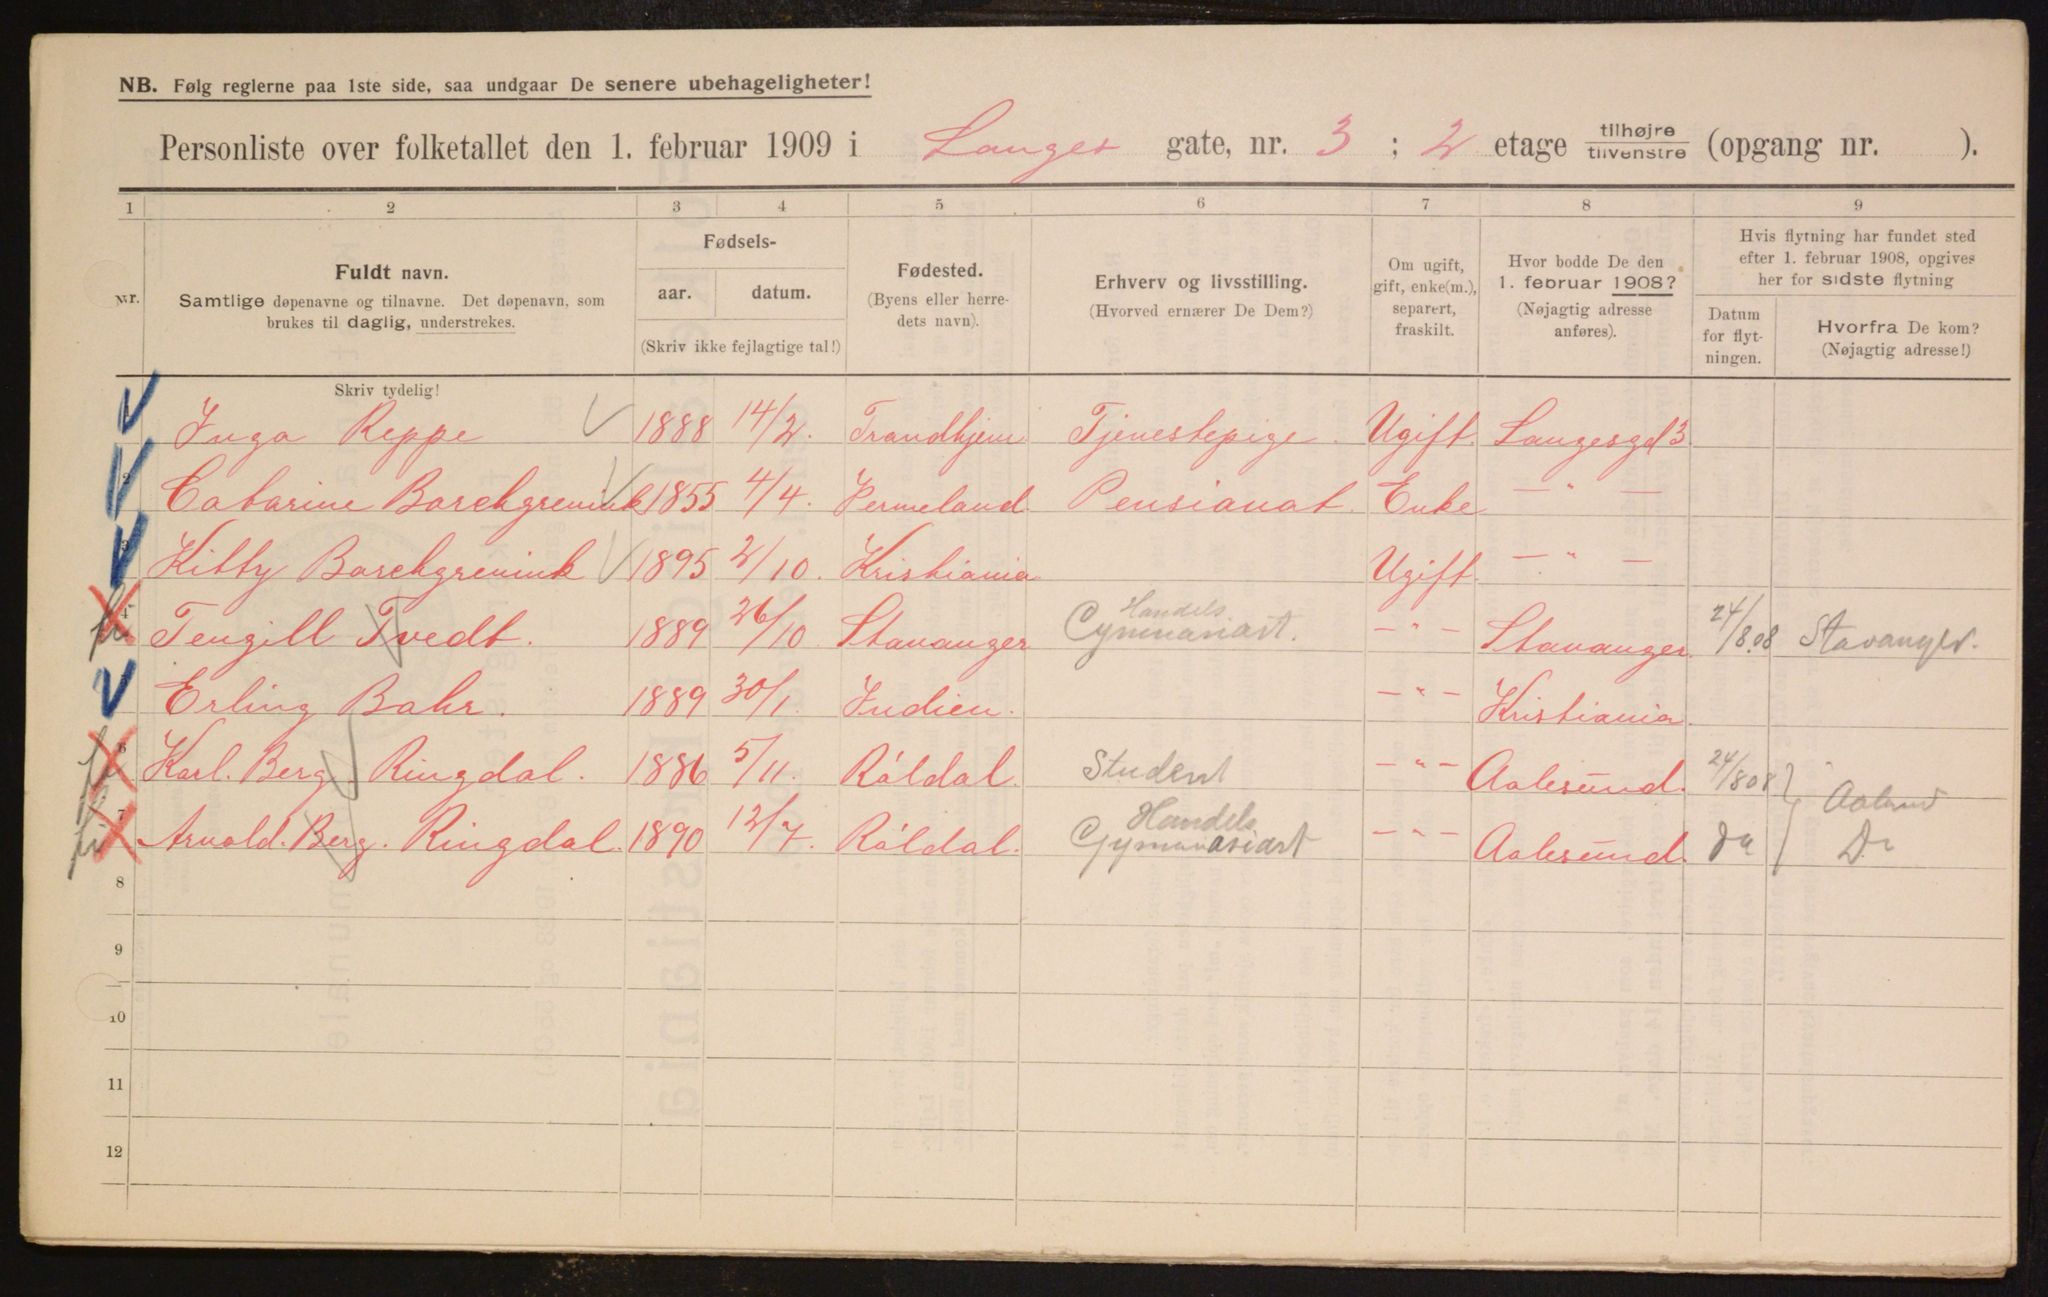 NB. Følg reglerne paa 1ste side, saa undgaar De senere ubehageligheter!
Personliste over folketallet den 1. februar 1909 i Langes gate, nr. 3 ; 2 etage tilhøjre / tilvenstre (opgang nr. ).
1 2 3 4 5 6 7 8 9
Nr.
Fuldt navn.
Samtlige døpenavne og tilnavne. Det døpenavn, som
brukes til daglig, understrekes.
Fødsels-
aar. datum.
(Skriv ikke fejlagtige tal!)
Fødested.
(Byens eller herre-
dets navn).
Erhverv og livsstilling.
(Hvorved ernærer De Dem?)
Om ugift,
gift, enke(m.),
separert,
fraskilt.
Hvor bodde De den
1. februar 1908?
(Nøjagtig adresse
anføres).
Hvis flytning har fundet sted
efter 1. februar 1908, opgives
her for sidste flytning
Datum
for flyt-
ningen.
Hvorfra De kom?
(Nøjagtig adresse!)
Skriv tydelig!
Inga Reppe 1888 14/2. Trondhjem Tjenestepige. Ugift. Langesgd 3
2 Catarine Borchgrevink 1855 4/4. Vermeland. Pensionat. Enke — " —
3 Kitty Borchgrevink 1895 2/10. Kristiania Ugift. — " —
4 Tengill Tvedt. 1889 26/10 Stavanger Handels Gymnasiast. — " — Stavanger. 24/8.08 Stavanger.
Erling Bahr. 1889 30/1. Indien. — " — Kristiania.
6 Karl. Berg. Ringdal. 1886 5/11. Róldal. Student — " — Aalesund. 24/8 08 Aalesund
7 Arnold. Berg. Ringdal. 1890 12/7. Róldal. Handels Gymnasiast — " — Aalesund. Do Do
8
9
10
11
12